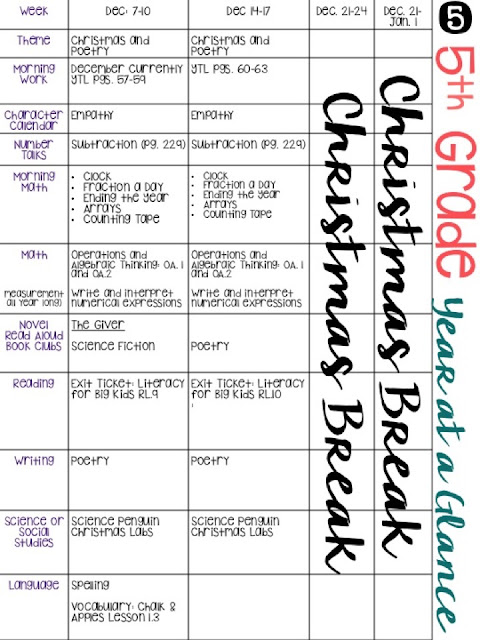 Week Dec: 7-10 Dec 14-17 Dec. 21-24 Dec. 21-
Jan. 1
Theme Christmas and Christmas and
Poetry Poetry
Morning December Currently YTL Pgs. 60-63
Work YTL Pgs. 57-59
Character Empathy Empathy
Calendar
Number Subtraction (Pg. 229) Subtraction (Pg. 229)
Talks
Morning • Clock • Clock
Math • Fraction a Day • Fraction a Day
• Ending the Year • Ending the Year
• Arrays • Arrays
• Counting Tape • Counting Tape
Math Operations and Operations and
Algebraic Thinking: OA.1 Algebraic Thinking: OA.1
and OA.2 and OA.2
measurement Write and interpret Write and interpret
all year long) numerical expressions numerical expressions
Novel The Giver
Read Aloud
Book Clubs Science Fiction Poetry
Reading Exit Ticket: Literacy Exit Ticket: Literacy
for Big Kids RL.9 for Big Kids RL.10
Writing Poetry Poetry
Science or Science Penguin Science Penguin
Social Christmas Labs Christmas Labs
Studies
Language Spelling
Vocabulary: Chalk &
Apples Lesson 1.3
Christmas Break
Christmas Break
5
5th Grade
Year at a Glance